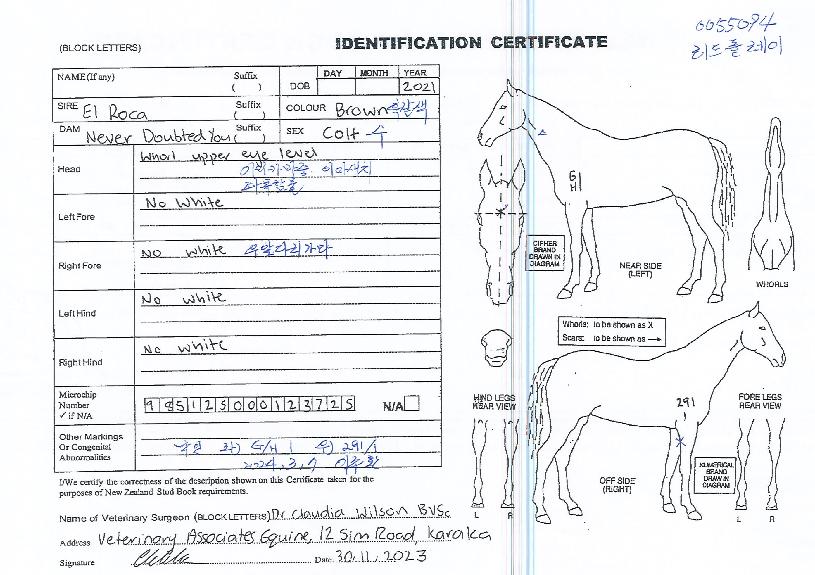 0055094
리드플레이
(BLOCK LETTERS)
IDENTIFICATION CERTIFICATE
NAME (If any) Suffix ( ) DOB DAY MONTH YEAR 2021
SIRE El Roca Suffix ( ) COLOUR Brown 흑갈색
DAM Never Doubted You Suffix ( ) SEX Colt 수
Head Whorl upper eye level
Left Fore No White
Right Fore No white
Left Hind No white
Right Hind No white
Microchip Number ✓ if N/A 985125000123725 N/A
Other Markings Or Congenital Abnormalities
낙인 좌) G/H 1 우) 291/1
2024.3.7
I/We certify the correctness of the description shown on this Certificate taken for the
purposes of New Zealand Stud Book requirements.
Name of Veterinary Surgeon (BLOCK LETTERS) Dr Claudia Wilson BVSc
Address Veterinary Associates Equine, 12 Sim Road, Karaka
Signature Date 30.11.2023
G
H
1
CIPHER
BRAND
DRAWN IN
DIAGRAM
NEAR SIDE
(LEFT)
WHORLS
Whorls: to be shown as X
Scars: to be shown as →
HIND LEGS
REAR VIEW
291
1
FORE LEGS
REAR VIEW
OFF SIDE
(RIGHT)
NUMERICAL
BRAND
DRAWN IN
DIAGRAM
L R
L R